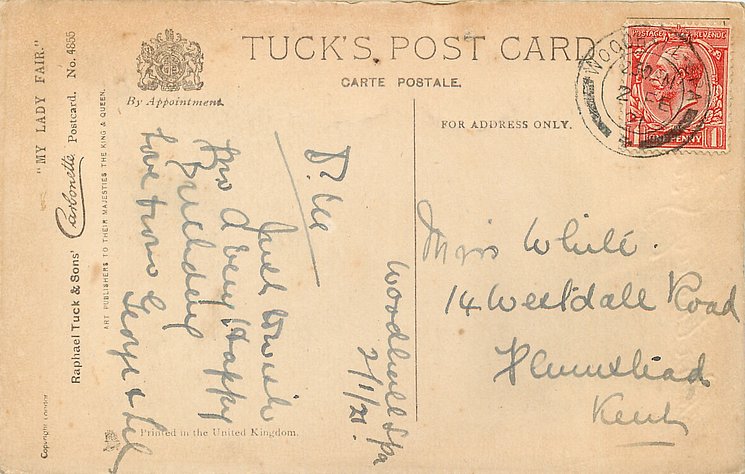 TUCK'S POST CARD
CARTE POSTALE.
By Appointment.
FOR ADDRESS ONLY.
"MY LADY FAIR."
Raphael Tuck & Sons' Carbonette Postcard. No. 4855
ART PUBLISHERS TO THEIR MAJESTIES THE KING & QUEEN.
Copyright London
Woodhall Spa
2/1/21.
Just to wish
you a Very Happy
Birthday
Love from George & Lil
Miss White.
14 Westdale Road
Plumstead
Kent
Printed in the United Kingdom.
POSTAGE REVENUE
ONE PENNY
1 1